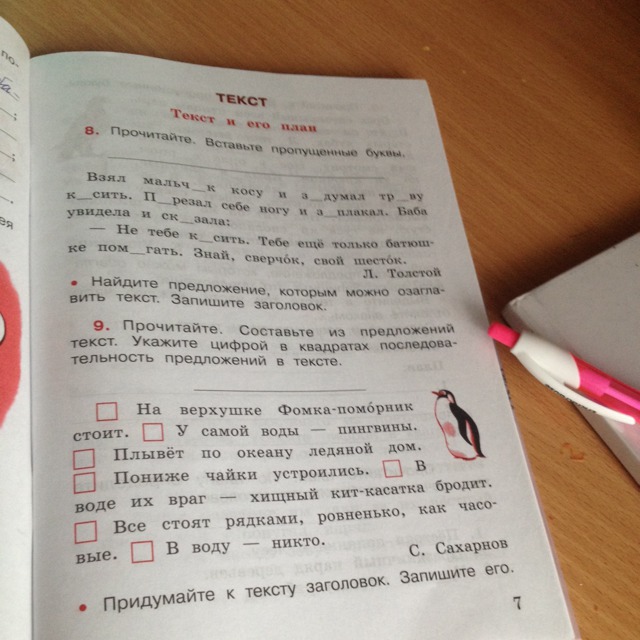 по-
ба-
;
;
ея
ТЕКСТ
Текст и его план
8. Прочитайте. Вставьте пропущенные буквы.
Взял мальч__к косу и з__думал тр__ву
к__сить. П__резал себе ногу и з__плакал. Баба
увидела и ск__зала:
— Не тебе к__сить. Тебе ещё только батюш-
ке пом__гать. Знай, сверчо́к, свой шесто́к.
Л. Толстой
• Найдите предложение, которым можно озагла-
вить текст. Запишите заголовок.
9. Прочитайте. Составьте из предложений
текст. Укажите цифрой в квадратах последова-
тельность предложений в тексте.
□ На верхушке Фомка-помо́рник
стоит. □ У самой воды — пингвины.
□ Плывёт по океану ледяной дом.
□ Пониже чайки устроились. □ В
воде их враг — хищный кит-касатка бродит.
□ Все стоят рядками, ровненько, как часо-
вые. □ В воду — никто.
С. Сахарнов
• Придумайте к тексту заголовок. Запишите его.
7